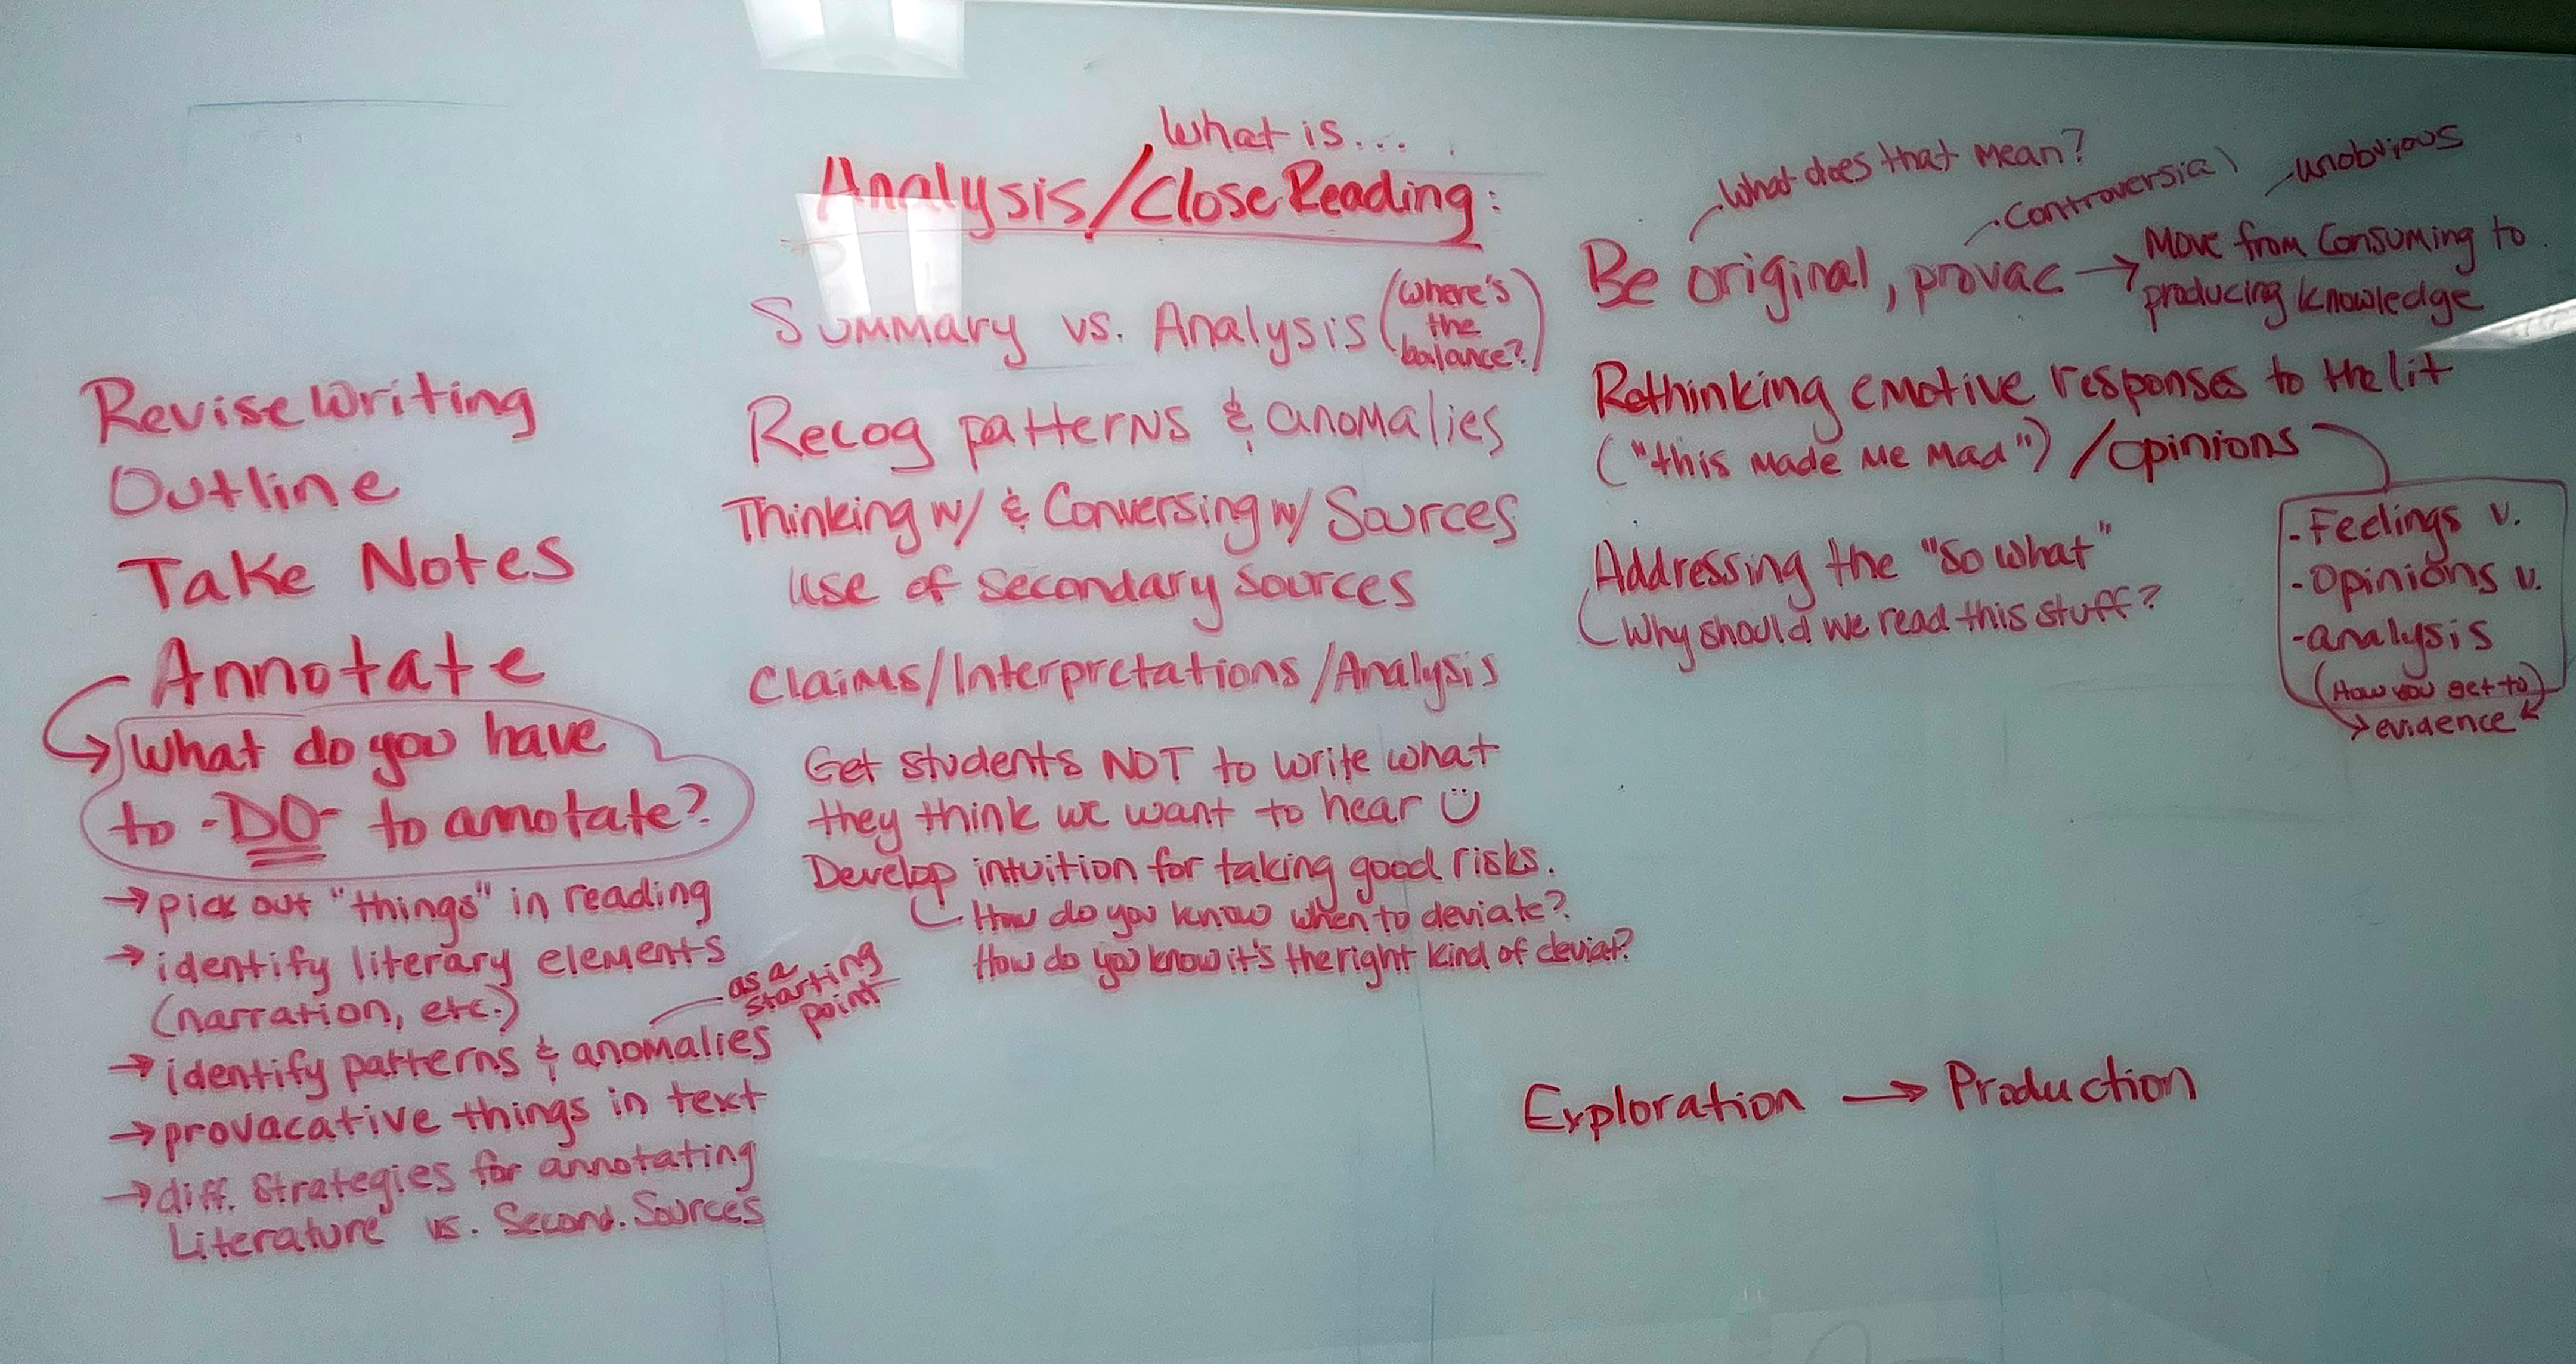 Revise Writing
Outline
Take Notes
Annotate
What do you have
to -DO- to annotate?
→ pick out "things" in reading
→ identify literary elements
(narration, etc.)
as a
starting
point
→ identify patterns & anomalies
→ provacative things in text
→ diff. strategies for annotating
Literature vs. Second. Sources
What is...
Analysis/Close Reading:
Summary vs. Analysis (where's
the
balance?)
Recog patterns & anomalies
Thinking w/ & Conversing w/ Sources
Use of secondary sources
Claims/Interpretations/Analysis
Get students NOT to write what
they think we want to hear ☺
Develop intuition for taking good risks.
How do you know when to deviate?
How do you know it's the right kind of deviat?
What does that mean?
controversial
unobvious
Be original, provac → Move from Consuming to
producing knowledge
Rethinking emotive responses to the lit
("this made me mad") /opinions
- Feelings v.
- Opinions v.
- analysis
(How you get to)
evidence
Addressing the "so what"
Why should we read this stuff?
Exploration → Production